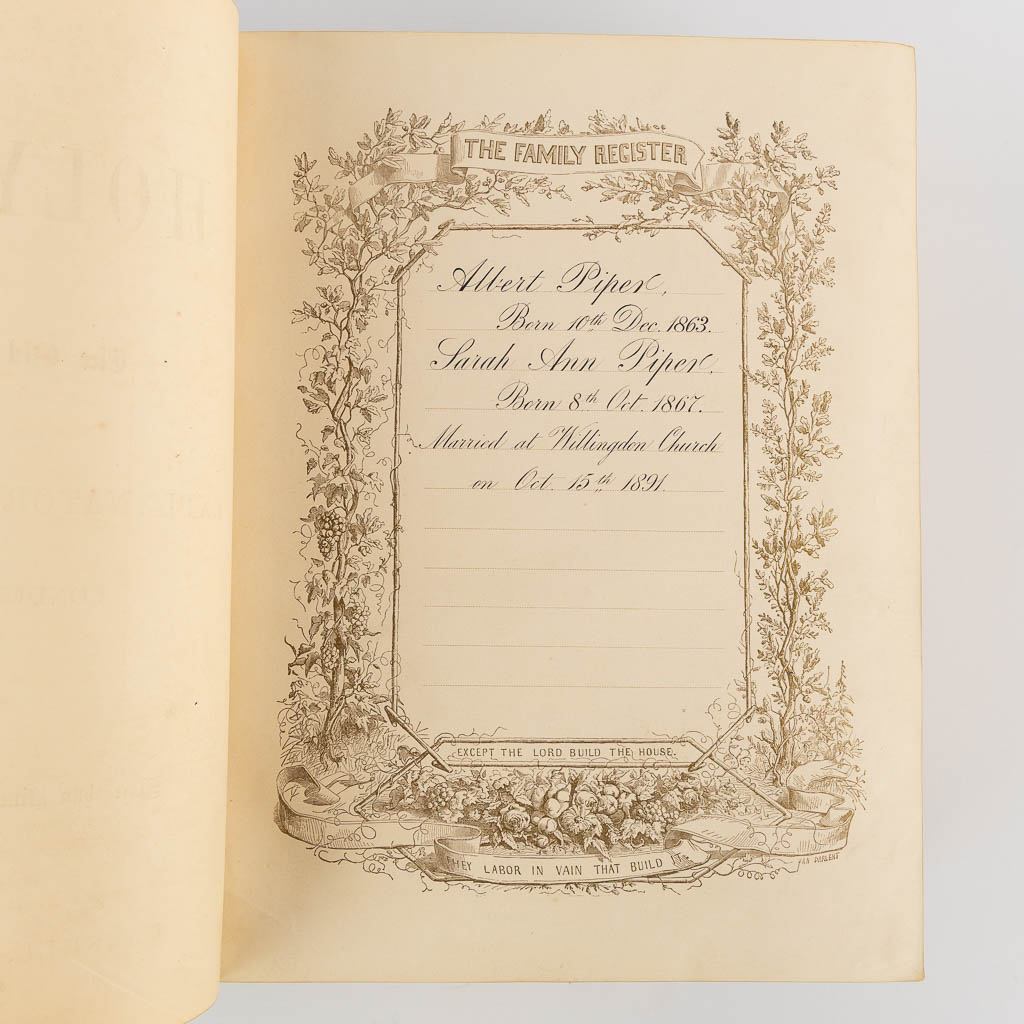 THE FAMILY REGISTER
Albert Piper,
Born 10th Dec. 1863.
Sarah Ann Piper.
Born 8th Oct. 1867.
Married at Willingdon Church
on Oct. 15th 1891.
EXCEPT THE LORD BUILD THE HOUSE.
THEY LABOR IN VAIN THAT BUILD IT.